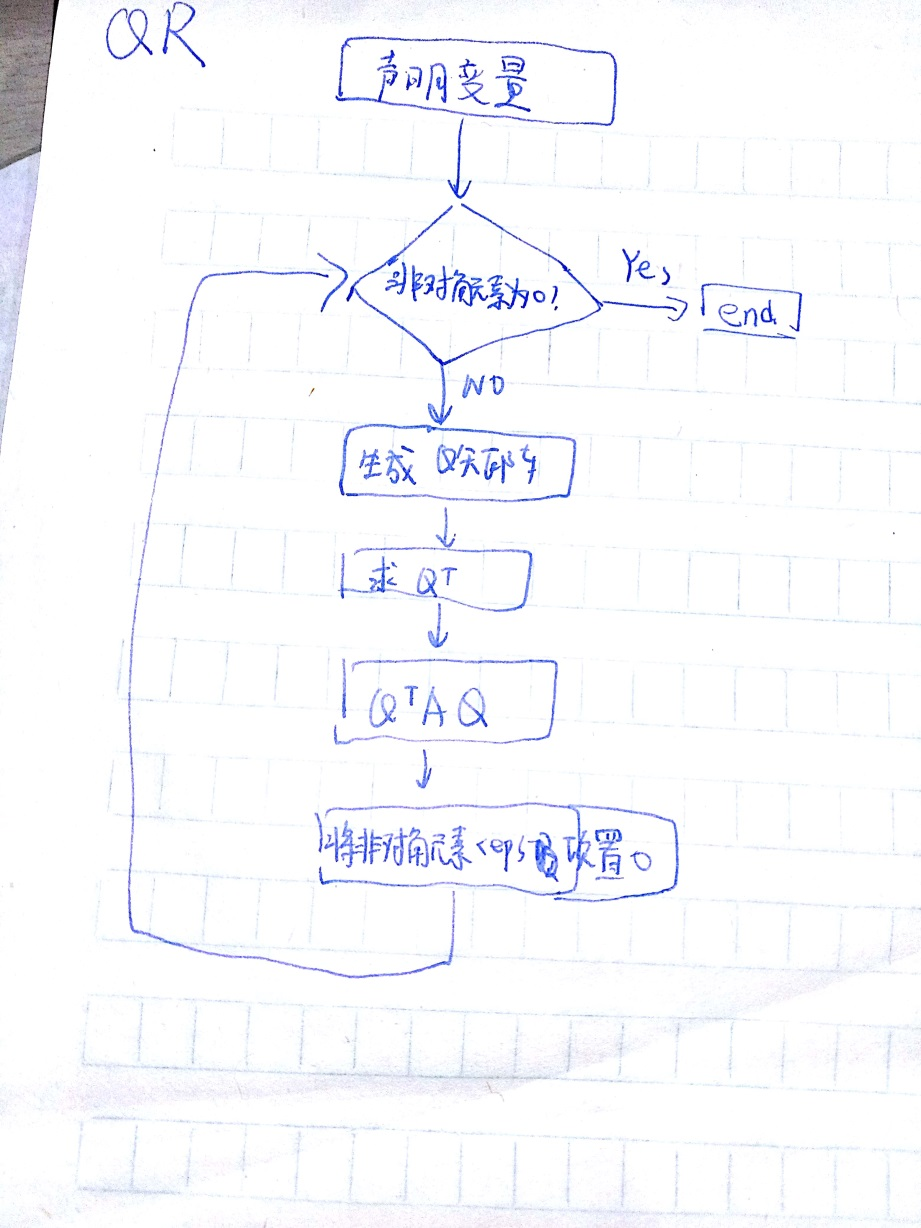 QR
声明变量
非对角元素为0?
Yes
end
NO
生成 Q矩阵
求 Qᵀ
QᵀAQ
将非对角元素<eps 置0